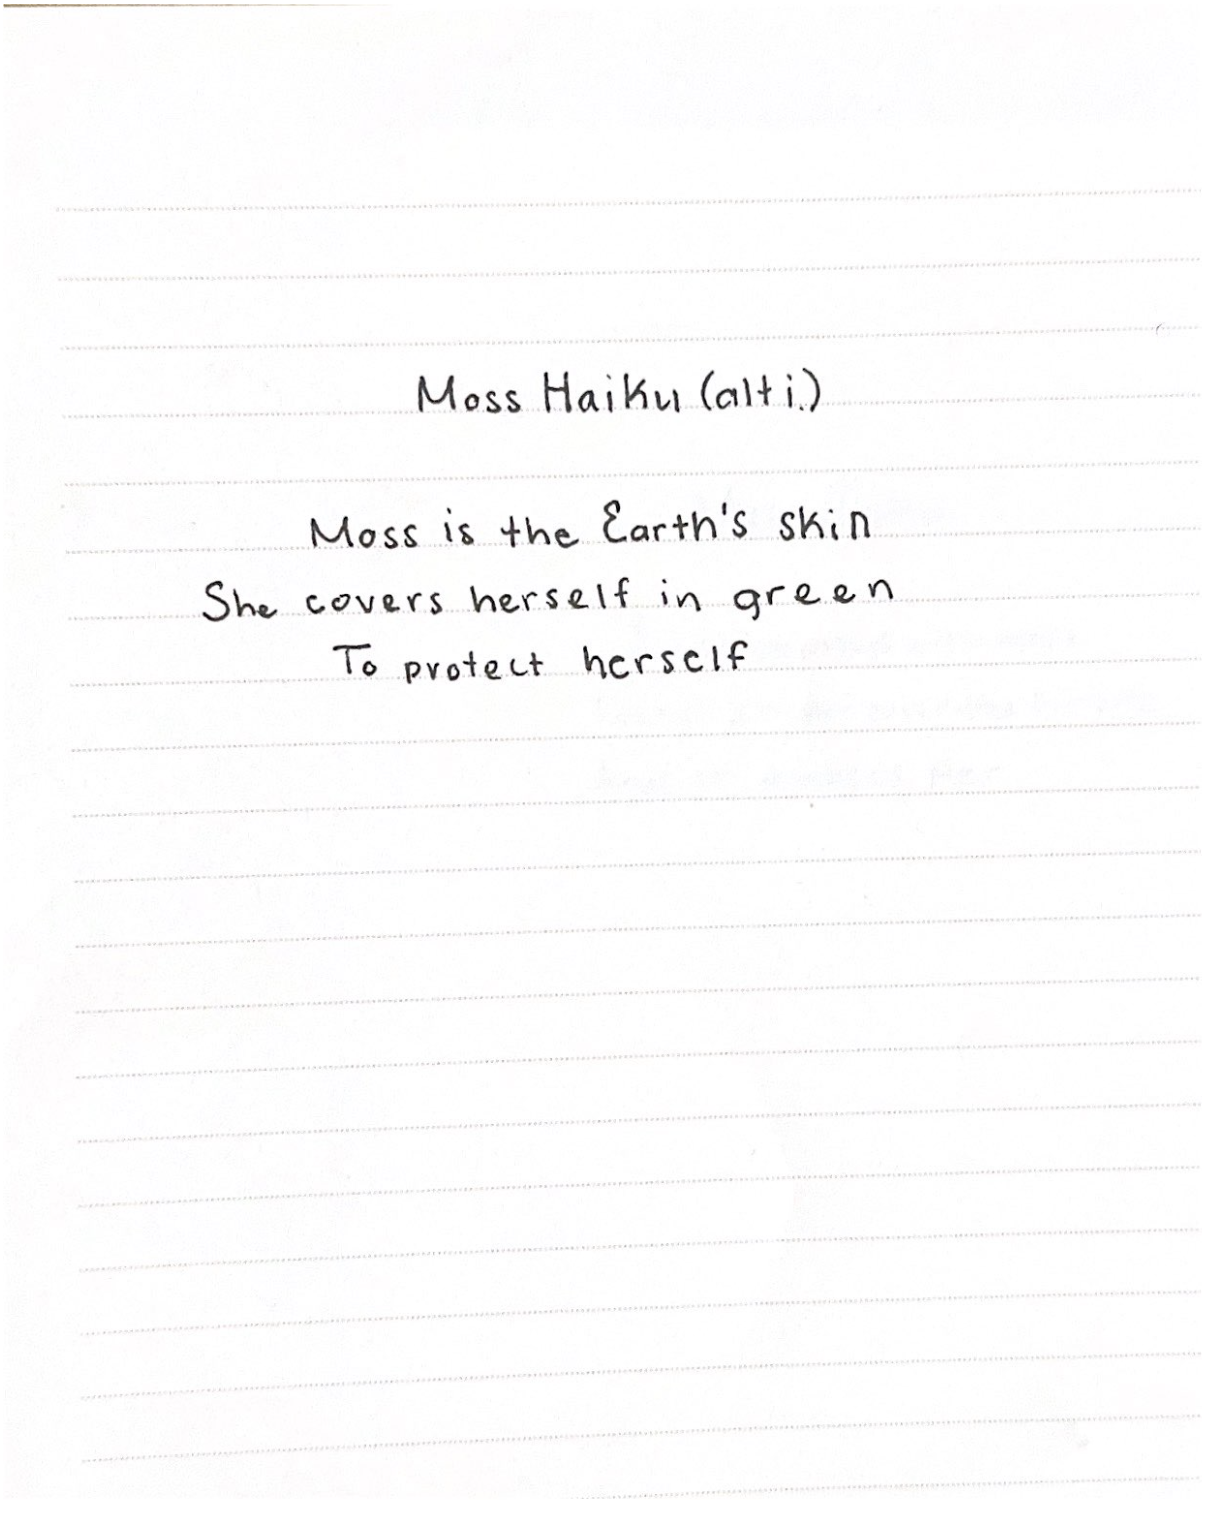 Moss Haiku (alt i.)
Moss is the Earth's skin
She covers herself in green
To protect herself